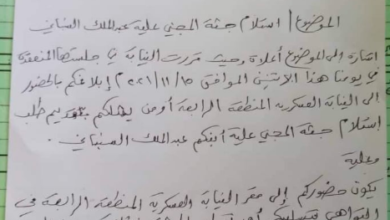 الموضوع / استلام جثة المجني عليه عبدالملك السنباني
اشارة إلى الموضوع أعلاه وحيث قررت النيابة في جلستها المنعقدة
في يومنا هذا الاثنين الموافق ١٥/١١/٢٠٢١م إبلاغكم بالحضور
إلى النيابة العسكرية المنطقة الرابعة أو من يمثلكم بتقديم طلب
استلام جثة المجني عليه ابنكم عبدالملك السنباني .
وعليه
يكون حضوركم إلى مقر النيابة العسكرية المنطقة الرابعة في